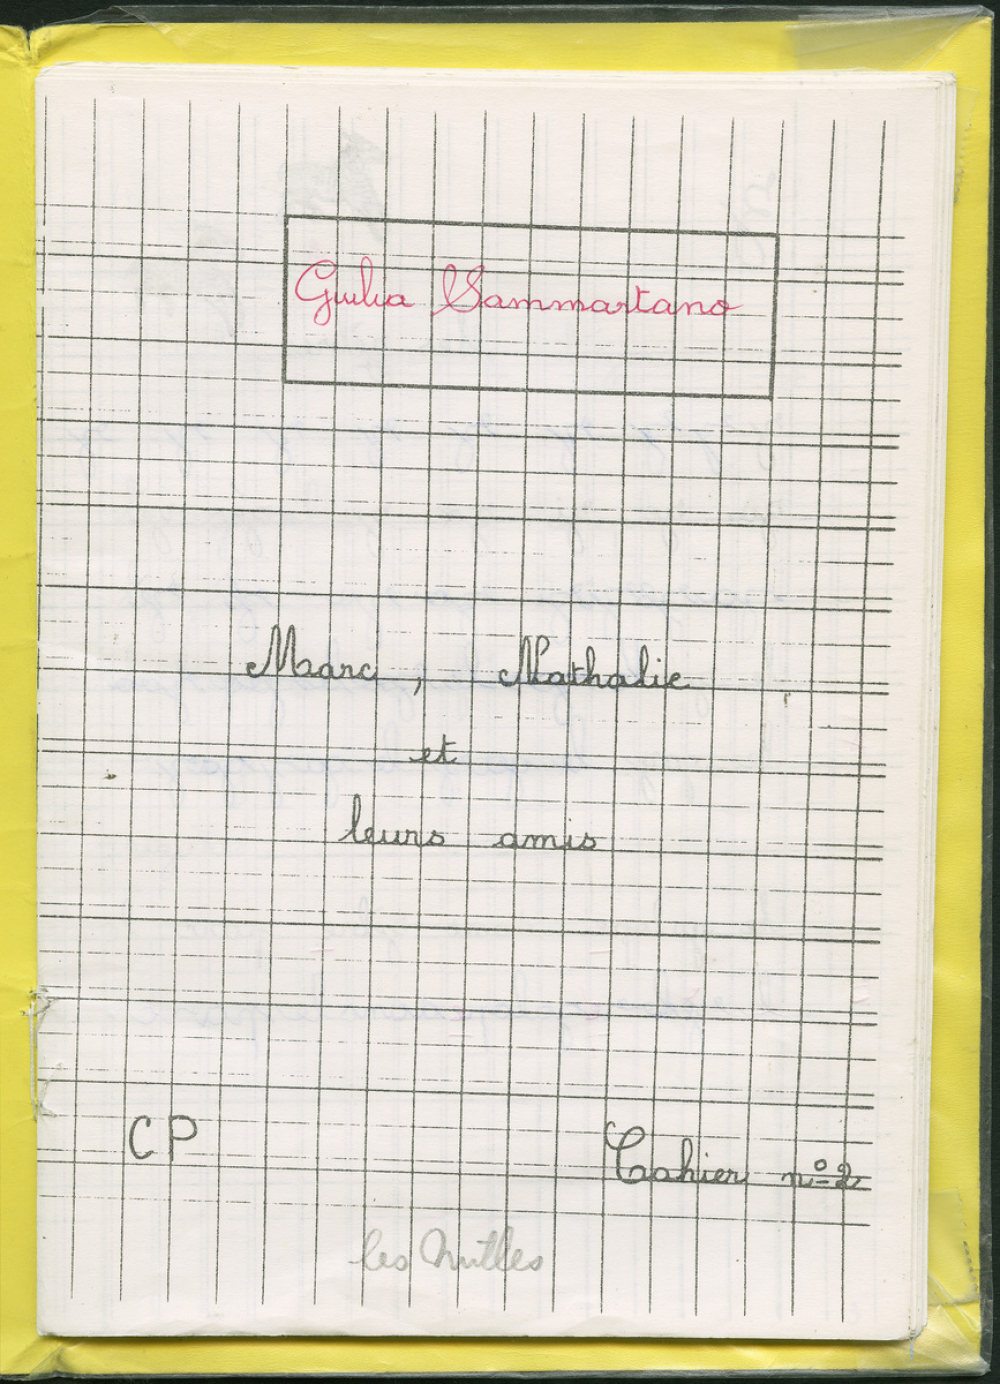 Giulia Sammartano
Marc, Nathalie
et
leurs amis
CP
Cahier n° 2
les